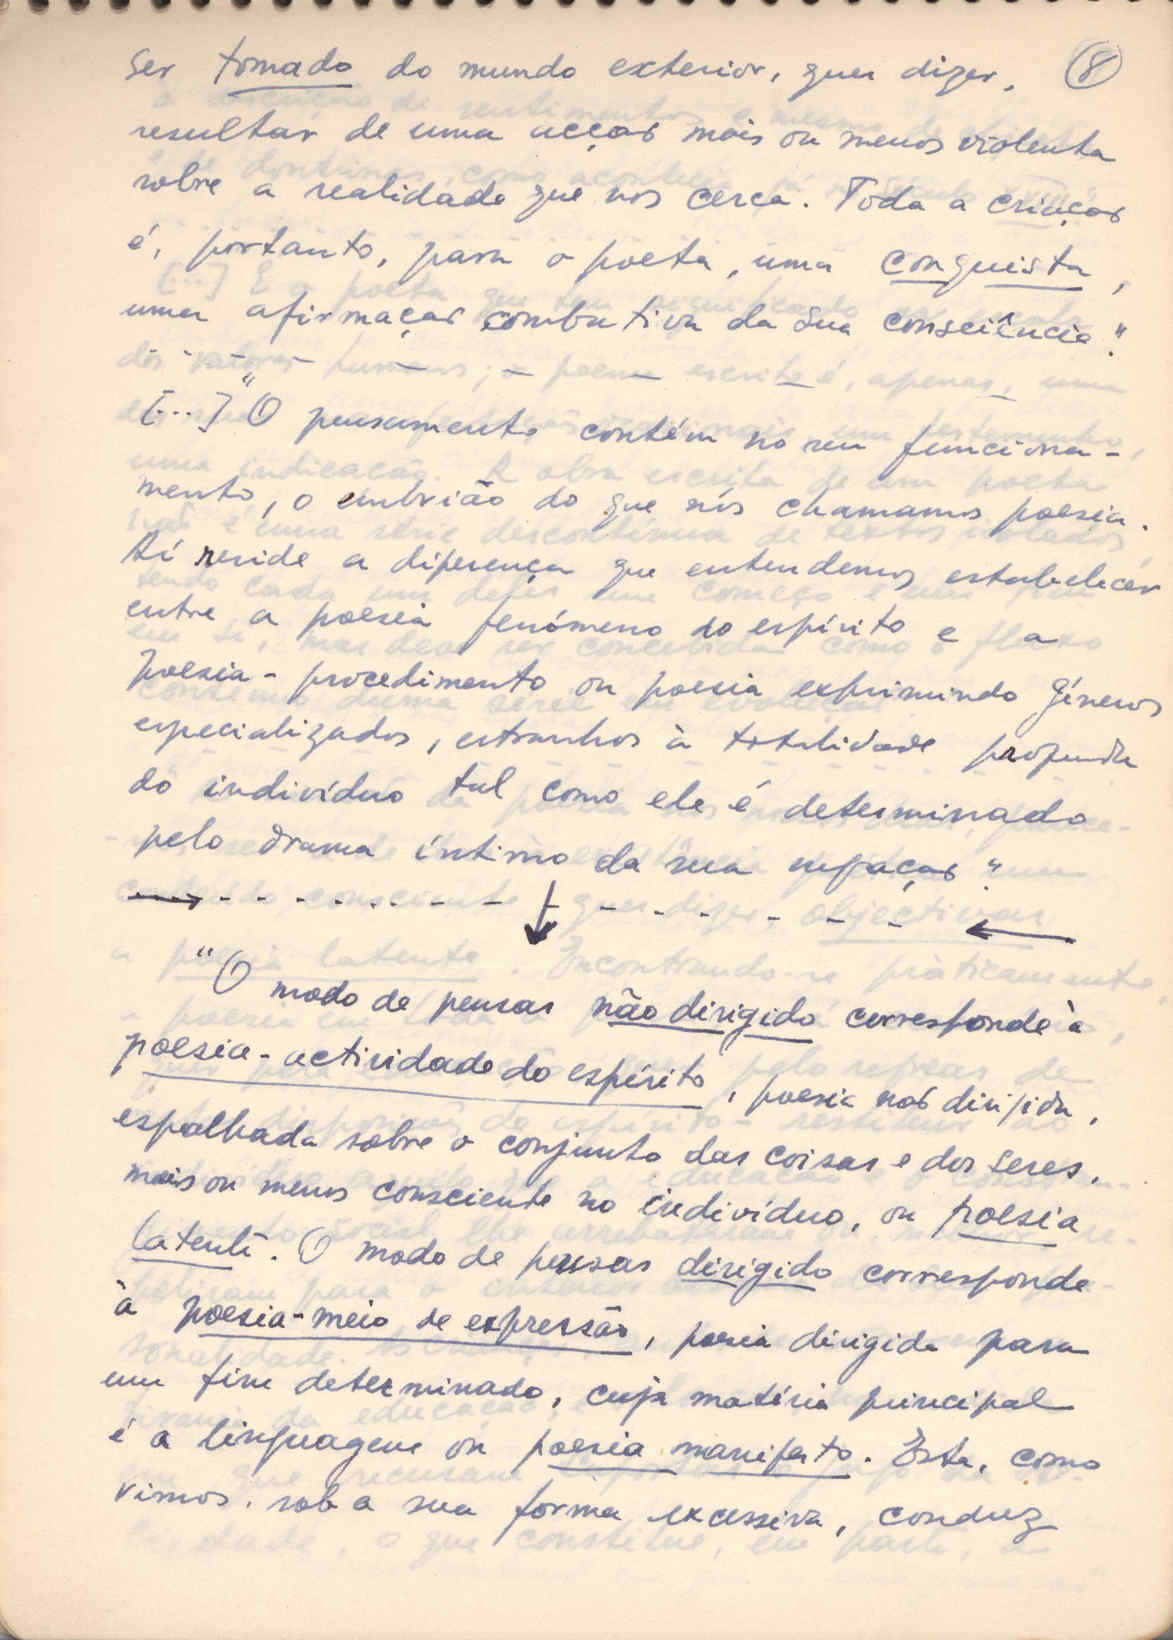 ser tomado do mundo exterior, quer dizer, 8
resultar de uma acção mais ou menos violenta
sobre a realidade que nos cerca. Toda a criação
é, portanto, para o poeta, uma conquista,
uma afirmação combativa da sua consciência."
[...] "O pensamento contém no seu funciona-
mento, o embrião do que nós chamamos poesia.
Aí reside a diferença que entendemos estabelecer
entre a poesia fenómeno do espírito e a
poesia-procedimento ou poesia exprimindo géneros
especializados, estranhos à totalidade profunda
do indivíduo tal como ele é determinado
pelo drama íntimo da sua negação."
"O modo de pensar não dirigido corresponde à
poesia-actividade do espírito, poesia não dirigida,
espalhada sobre o conjunto das coisas e dos seres,
mais ou menos consciente no indivíduo, ou poesia
latente. O modo de pensar dirigido corresponde
à poesia-meio de expressão, poesia dirigida para
um fim determinado, cuja matéria principal
é a linguagem ou poesia manifesto. Esta, como
vimos, sob a sua forma excessiva, conduz